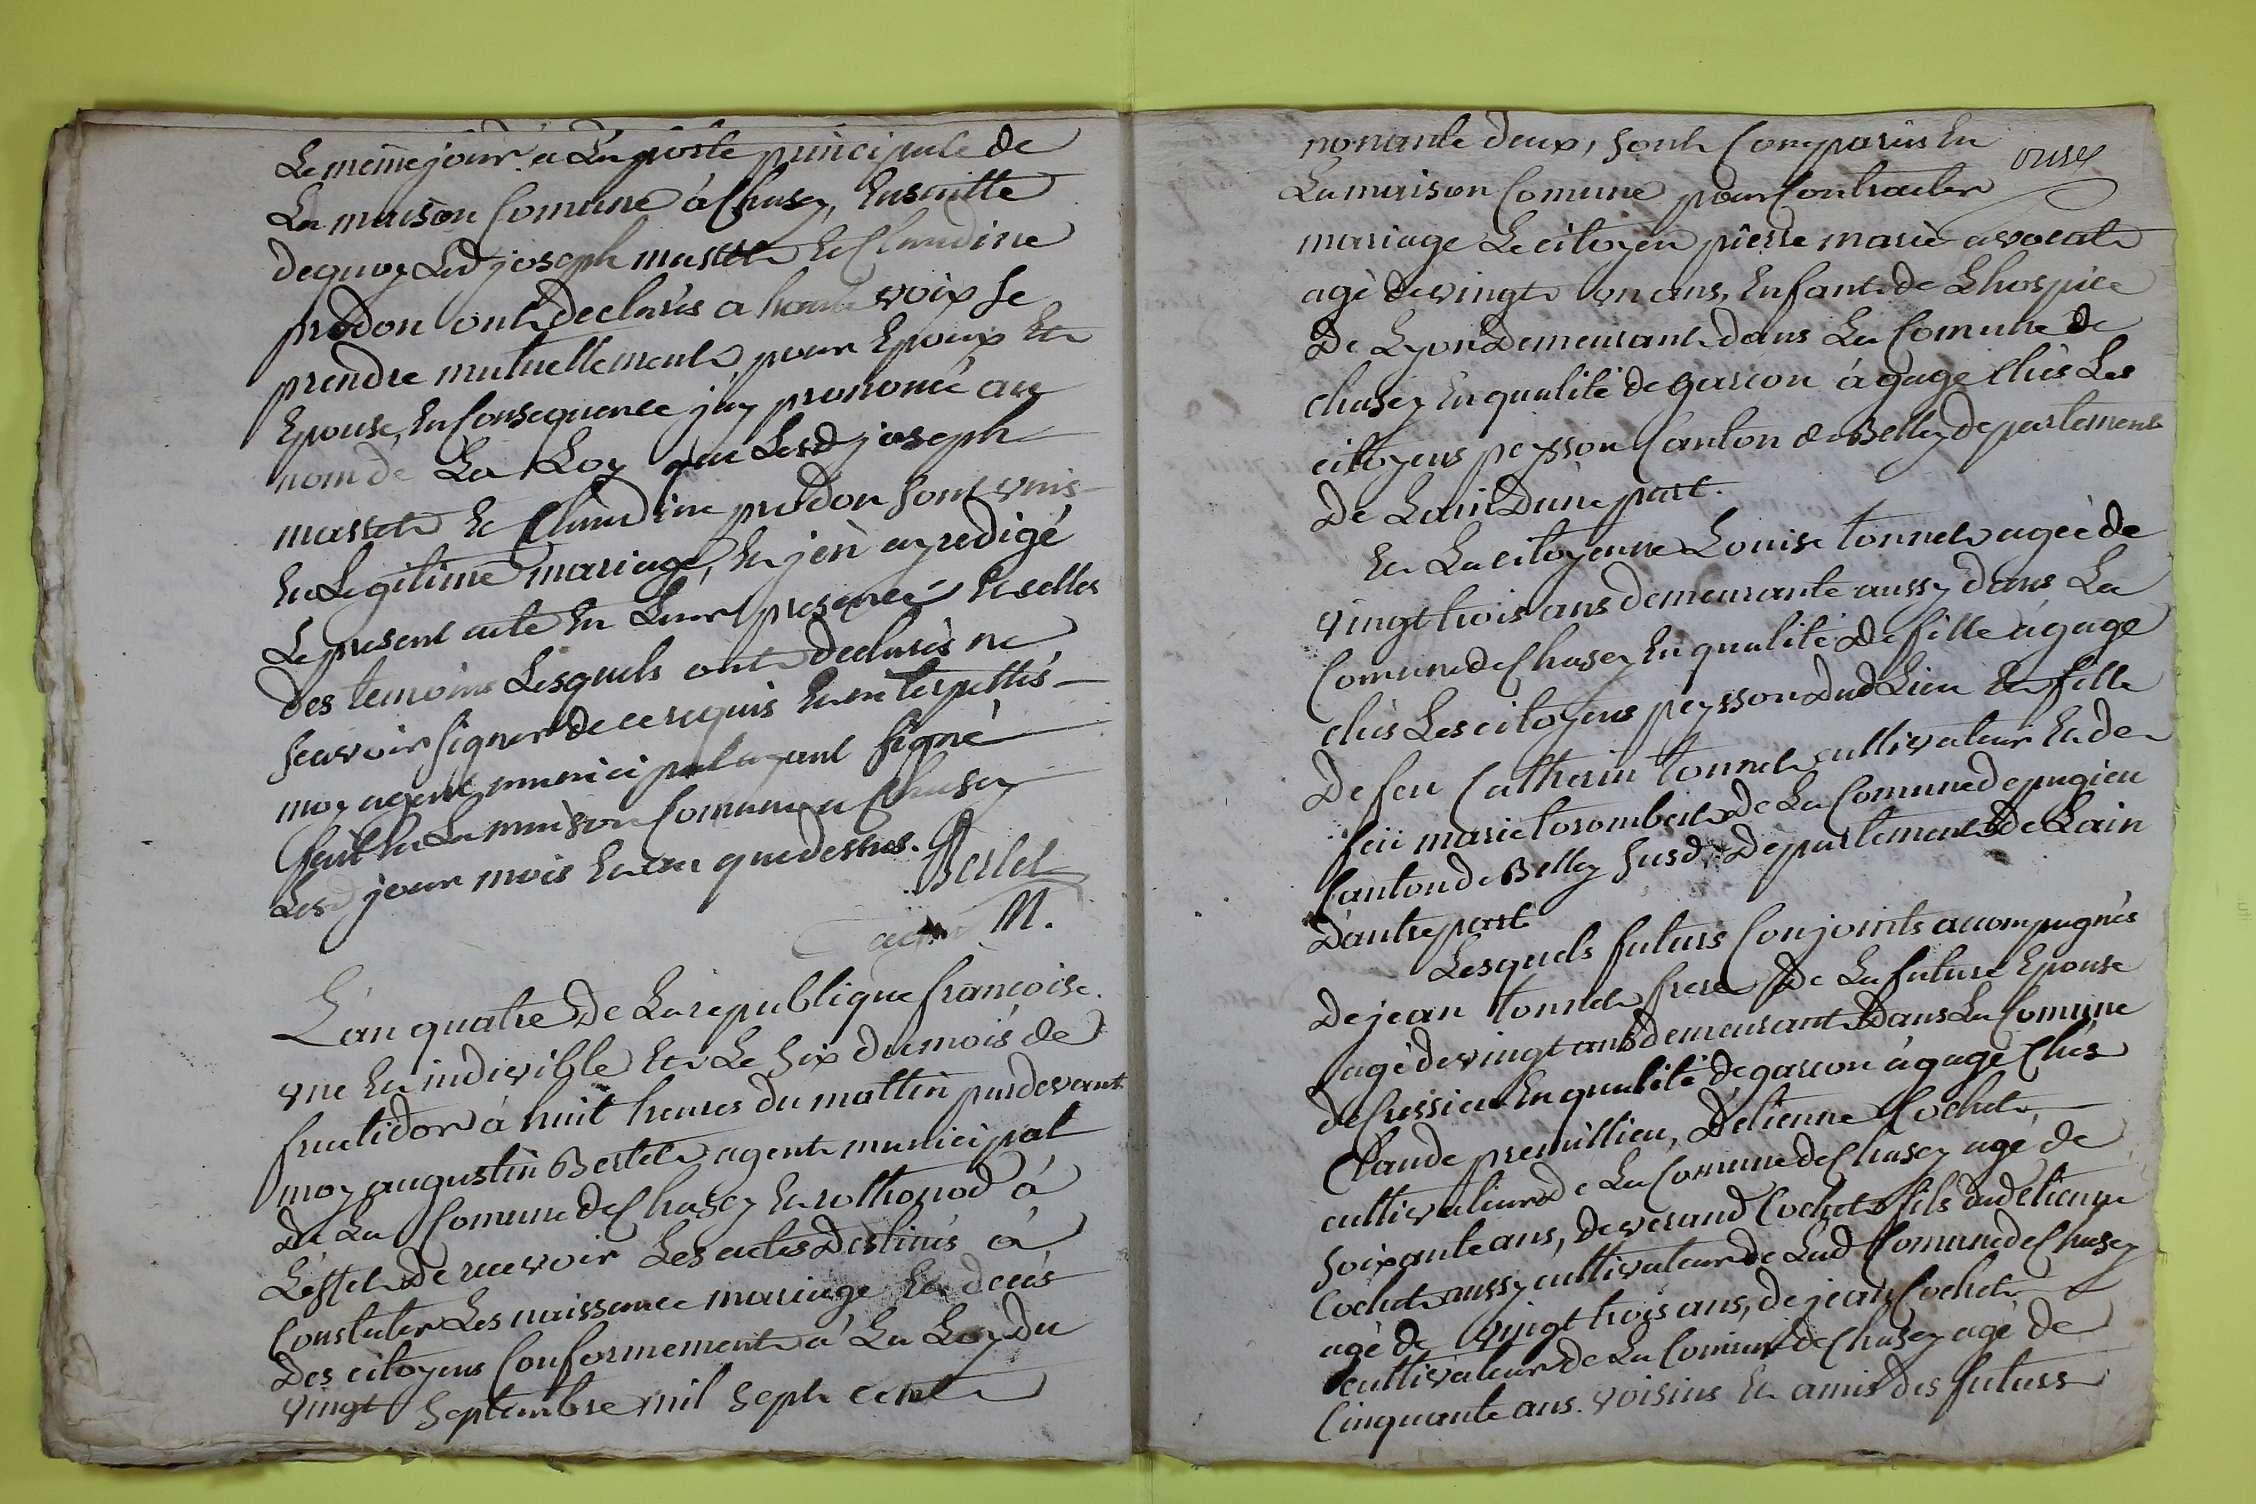 Le meme jour à La porte principale de
La maison Comune à Chasey, Ensuitte
dequoy Led joseph massot Et Claudine
prodon ont declarés a haute voix se
prendre mutuellement pour Epoux Et
Epouse, En Consequence jay prononcé au
nom de La Loy que Lesd joseph
massot Et Claudine prodon sont unis
En Legitime mariage, Et jen ay redigé
Le present acte En Leur presence Et celles
des temoins Lesquels ont declarés ne
scavoir signer de ce requis Et interpellés
moy agent municipal ayant signé
fait En La maison Comune a Chasey
Lesd jour mois Et an que dessus.
Bertet
M.
L'an quatre de La republique françoise
une Et indivisible Et Le six du mois de
fructidor à huit heures du mattin pardevant
moy augustin Bertet agent municipal
de La Comune de Chasey Et rothonod à
L'effet de recevoir Les actes Destinés à
Constater Les naissance mariage Et decés
Des citoyens Conformement à La Loy du
vingt septembre mil sept cent
nonante deux, sont Comparus En
onze
La maison Comune pour Contracter
mariage Le citoyen pierre marie avocat
agé de vingt un ans, Enfant de Lhospice
De Lyon Demeurant dans La Comune de
chasey En qualité de garcon à gage chés Les
citoyens peysson Canton de Belley departement
De Lain Dune part.
Et La citoyenne Louise tonnet agée de
vingt trois ans demeurante aussy dans La
Comune de Chasey En qualité de fille à gage
chés Les citoyens peysson Dud Lieu Et fille
De feu Catherin tonnet cultivateur Et de
feue marie torombert de La Comune de pugieu
Canton de Belley susd, Departement de Lain
D'autre part
Lesquels futurs Conjoints accompagnés
De jean tonnet frere De La future Epouse
agé de vingt ans demeurant Dans La Comune
de Cressieu En qualité de garcon à gage Chés
Claude premillieu, D'etienne Cochet
cultivateur de La Comune de Chasey agé de
soixante ans, de verand Cochet fils dud etienne
Cochet aussy cultivateur de Lad Comune de Chasey
agé de vingt trois ans, de jean Cochet
cultivateur de La Comune de Chasey agé de
Cinquante ans. voisins Et amis des futurs